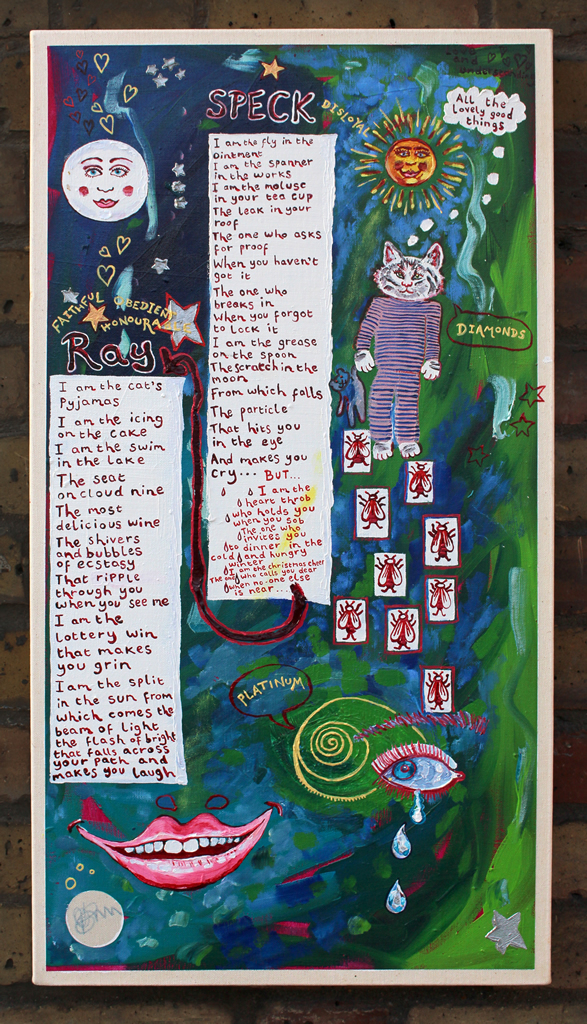 and
understanding
All the
lovely good
things
SPECK
DISLOYAL
I am the fly in the
ointment
I am the spanner
in the works
I am the moluse
in your tea cup
The leak in your
roof
The one who asks
for proof
When you haven't
got it
The one who
breaks in
When you forgot
to lock it
I am the grease
on the spoon
The scratch in the
moon
From which falls
The particle
That hits you
in the eye
And makes you
cry... BUT...
I am the
heart throb
who holds you
when you sob
The one who
invites you
to dinner in the
cold and hungry
winter
I am the christmas cheer
The one who calls you dear
when no one else
is near...
DIAMONDS
FAITHFUL OBEDIENT
HONOURABLE
Ray
I am the cat's
Pyjamas
I am the icing
on the cake
I am the swim
in the lake
The seat
on cloud nine
The most
delicious wine
The shivers
and bubbles
of ecstasy
That ripple
through you
when you see me
I am the
lottery win
that makes
you grin
I am the split
in the sun from
which comes the
beam of light
the flash of bright
that falls across
your path and
makes you laugh
PLATINUM